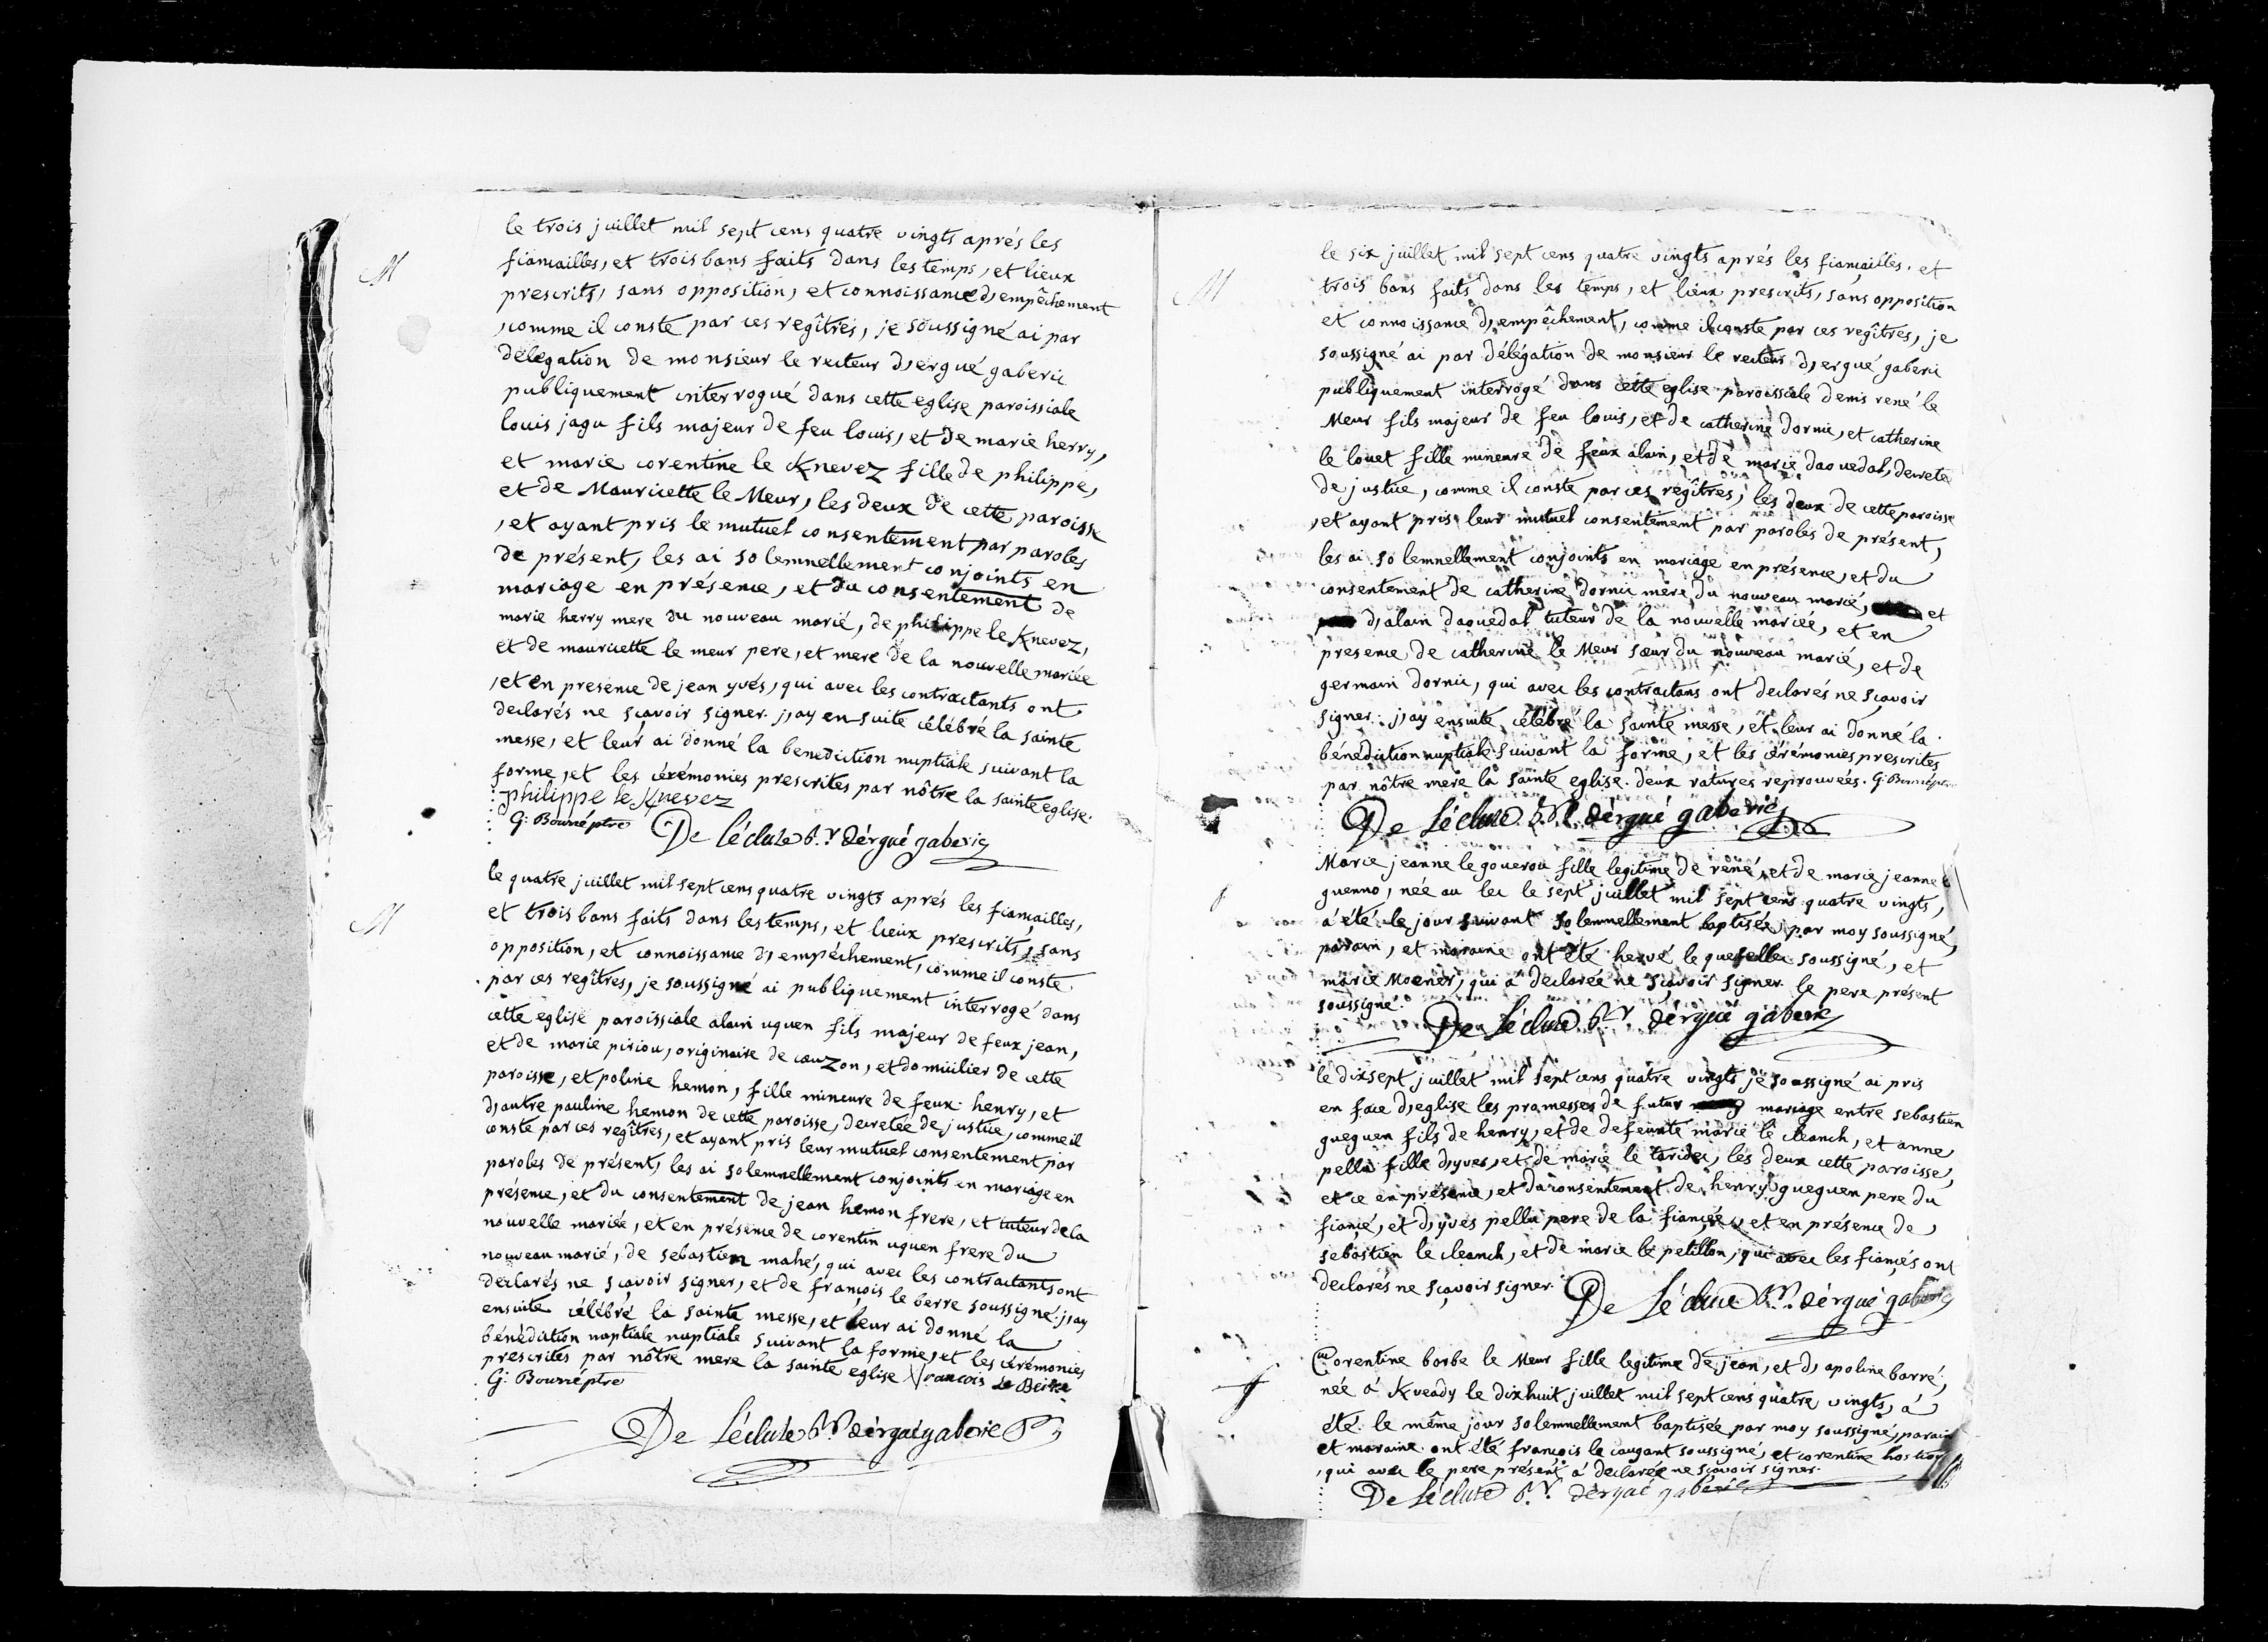 M
le trois juillet mil sept cens quatre vingts aprés les
fiançailles, et trois bans faits dans les temps, et lieux
prescrits, sans opposition, et connoissance d'empêchement
, comme il conste par ces regîtres, je soussigné ai par
délégation de monsieur le recteur d'ergué gaberic
publiquement interrogué dans cette eglise paroissiale
louis jagu fils majeur de feu louis, et de marie herry,
et marie corentine le Knevez fille de philippe,
et de Mauricette le Meur, les deux de cette paroisse
, et ayant pris le mutuel consentement par paroles
de présent, les ai solemnellement conjoints en
mariage en présence, et du consentement de
marie herry mere du nouveau marié, de philippe le Knevez,
et de mauricette le meur pere, et mere de la nouvelle mariée
, et en presence de jean yvés, qui avec les contractants ont
declarés ne sçavoir signer. j'ay ensuite célébré la sainte
messe, et leur ai donné la benediction nuptiale suivant la
forme, et les cérémonies prescrites par nôtre la sainte eglise.
philippe le Knevez
G: Bourré ptre De Lécluze b.r dérgué gaberic
M
le quatre juillet mil sept cens quatre vingts aprés les fiançailles,
et trois bans faits dans les temps, et lieux prescrits, sans
opposition, et connoissance d'empéchement, comme il conste
par ces regîtres, je soussigné ai publiquement interrogé dans
cette eglise paroissiale alain uguen fils majeur de feux jean,
et de marie piriou, originaire de cauzon, et domicilier de cette
paroisse, et poline hemon, fille mineure de feux henry, et
d'autre pauline hemon de cette paroisse, decretée de justice, comme il
conste par ces regîtres, et ayant pris leur mutuel consentement par
paroles de présent, les ai solemnellement conjoints en mariage en
présence, et du consentement de jean hemon frere, et tuteur de la
nouvelle mariée, et en présence de corentin uguen frere du
nouveau marié, de sebastien mahé, qui avec les contractants ont
declarés ne sçavoir signer, et de françois le berre soussigné. j'ay
ensuite célébré la sainte messe, et leur ai donné la
bénédiction nuptiale nuptiale suivant la forme, et les cérémonies
prescrites par nôtre mere la sainte eglise francois Le Berre
G: Bourré ptre
De Lécluze b.r dérgué gaberic
M
le six juillet mil sept cens quatre vingts aprés les fiançailles, et
trois bans faits dans les temps, et lieux prescrits, sans opposition
et connoissance d'empêchement, comme il conste par ces regîtres, je
soussigné ai par délégation de monsieur le recteur d'ergué gaberic
publiquement interrogé dans cette eglise paroissiale denis rené le
Meur fils majeur de feu louis, et de catherine dornic, et catherine
le louet fille mineure de feux alain, et de marie daouedal, decretée
de justice, comme il conste par ces regîtres, les deux de cette paroisse
, et ayant pris leur mutuel consentement par paroles de présent,
les ai solemnellement conjoints en mariage en présence, et du
consentement de catherine dornic mere du nouveau marié, et
d'alain daouedal tuteur de la nouvelle mariée, et en
presence de catherine le Meur sœur du nouveau marié, et de
germain dornic, qui avec les contractans ont declarés ne sçavoir
signer. j'ay ensuite célébré la sainte messe, et leur ai donné la
bénédiction nuptiale suivant la forme, et les cérémonies prescrites
par nôtre mere la sainte eglise. deux ratures reprouvées. G: Bourré ptre
De Lécluze b.r dérgué gaberic
Marie jeanne le gouerou fille legitime de rené, et de marie jeanne
guenno, née au lec le sept juillet mil sept cens quatre vingts,
a été le jour suivant solemnellement baptisée par moy soussigné,
parain, et maraine ont été hervé le quefellec soussigné, et
marie Moener, qui a declarée ne sçavoir signer. le pere présent
soussigné.
De Lécluze b.r dérgué gaberic
le dixsept juillet mil sept cens quatre vingts je soussigné ai pris
en face d'eglise les promesses de futur mariage entre sebastien
gueguen fils de henry, et de defeunte marie le cleanch, et anne
pellu fille d'yves, et de marie le taridec, les deux cette paroisse,
et ce en présence, et du consentement de henry gueguen pere du
fiancé, et d'yves pellu pere de la fiancée, et en présence de
sebastien le cleanch, et de marie le petillon, qui avec les fiancés ont
declarés ne sçavoir signer.
De Lécluze b.r dérgué gaberic
Corentine barbe le Meur fille legitime de jean, et d'apoline barré,
née á Kveady le dixhuit juillet mil sept cens quatre vingts, a
été le même jour solemnellement baptisée par moy soussigné, parain
et maraine ont été françois le caugant soussigné, et corentine hostiou
, qui avec le pere présent a declarée ne sçavoir signer.
De Lécluze b.r dérgué gaberic